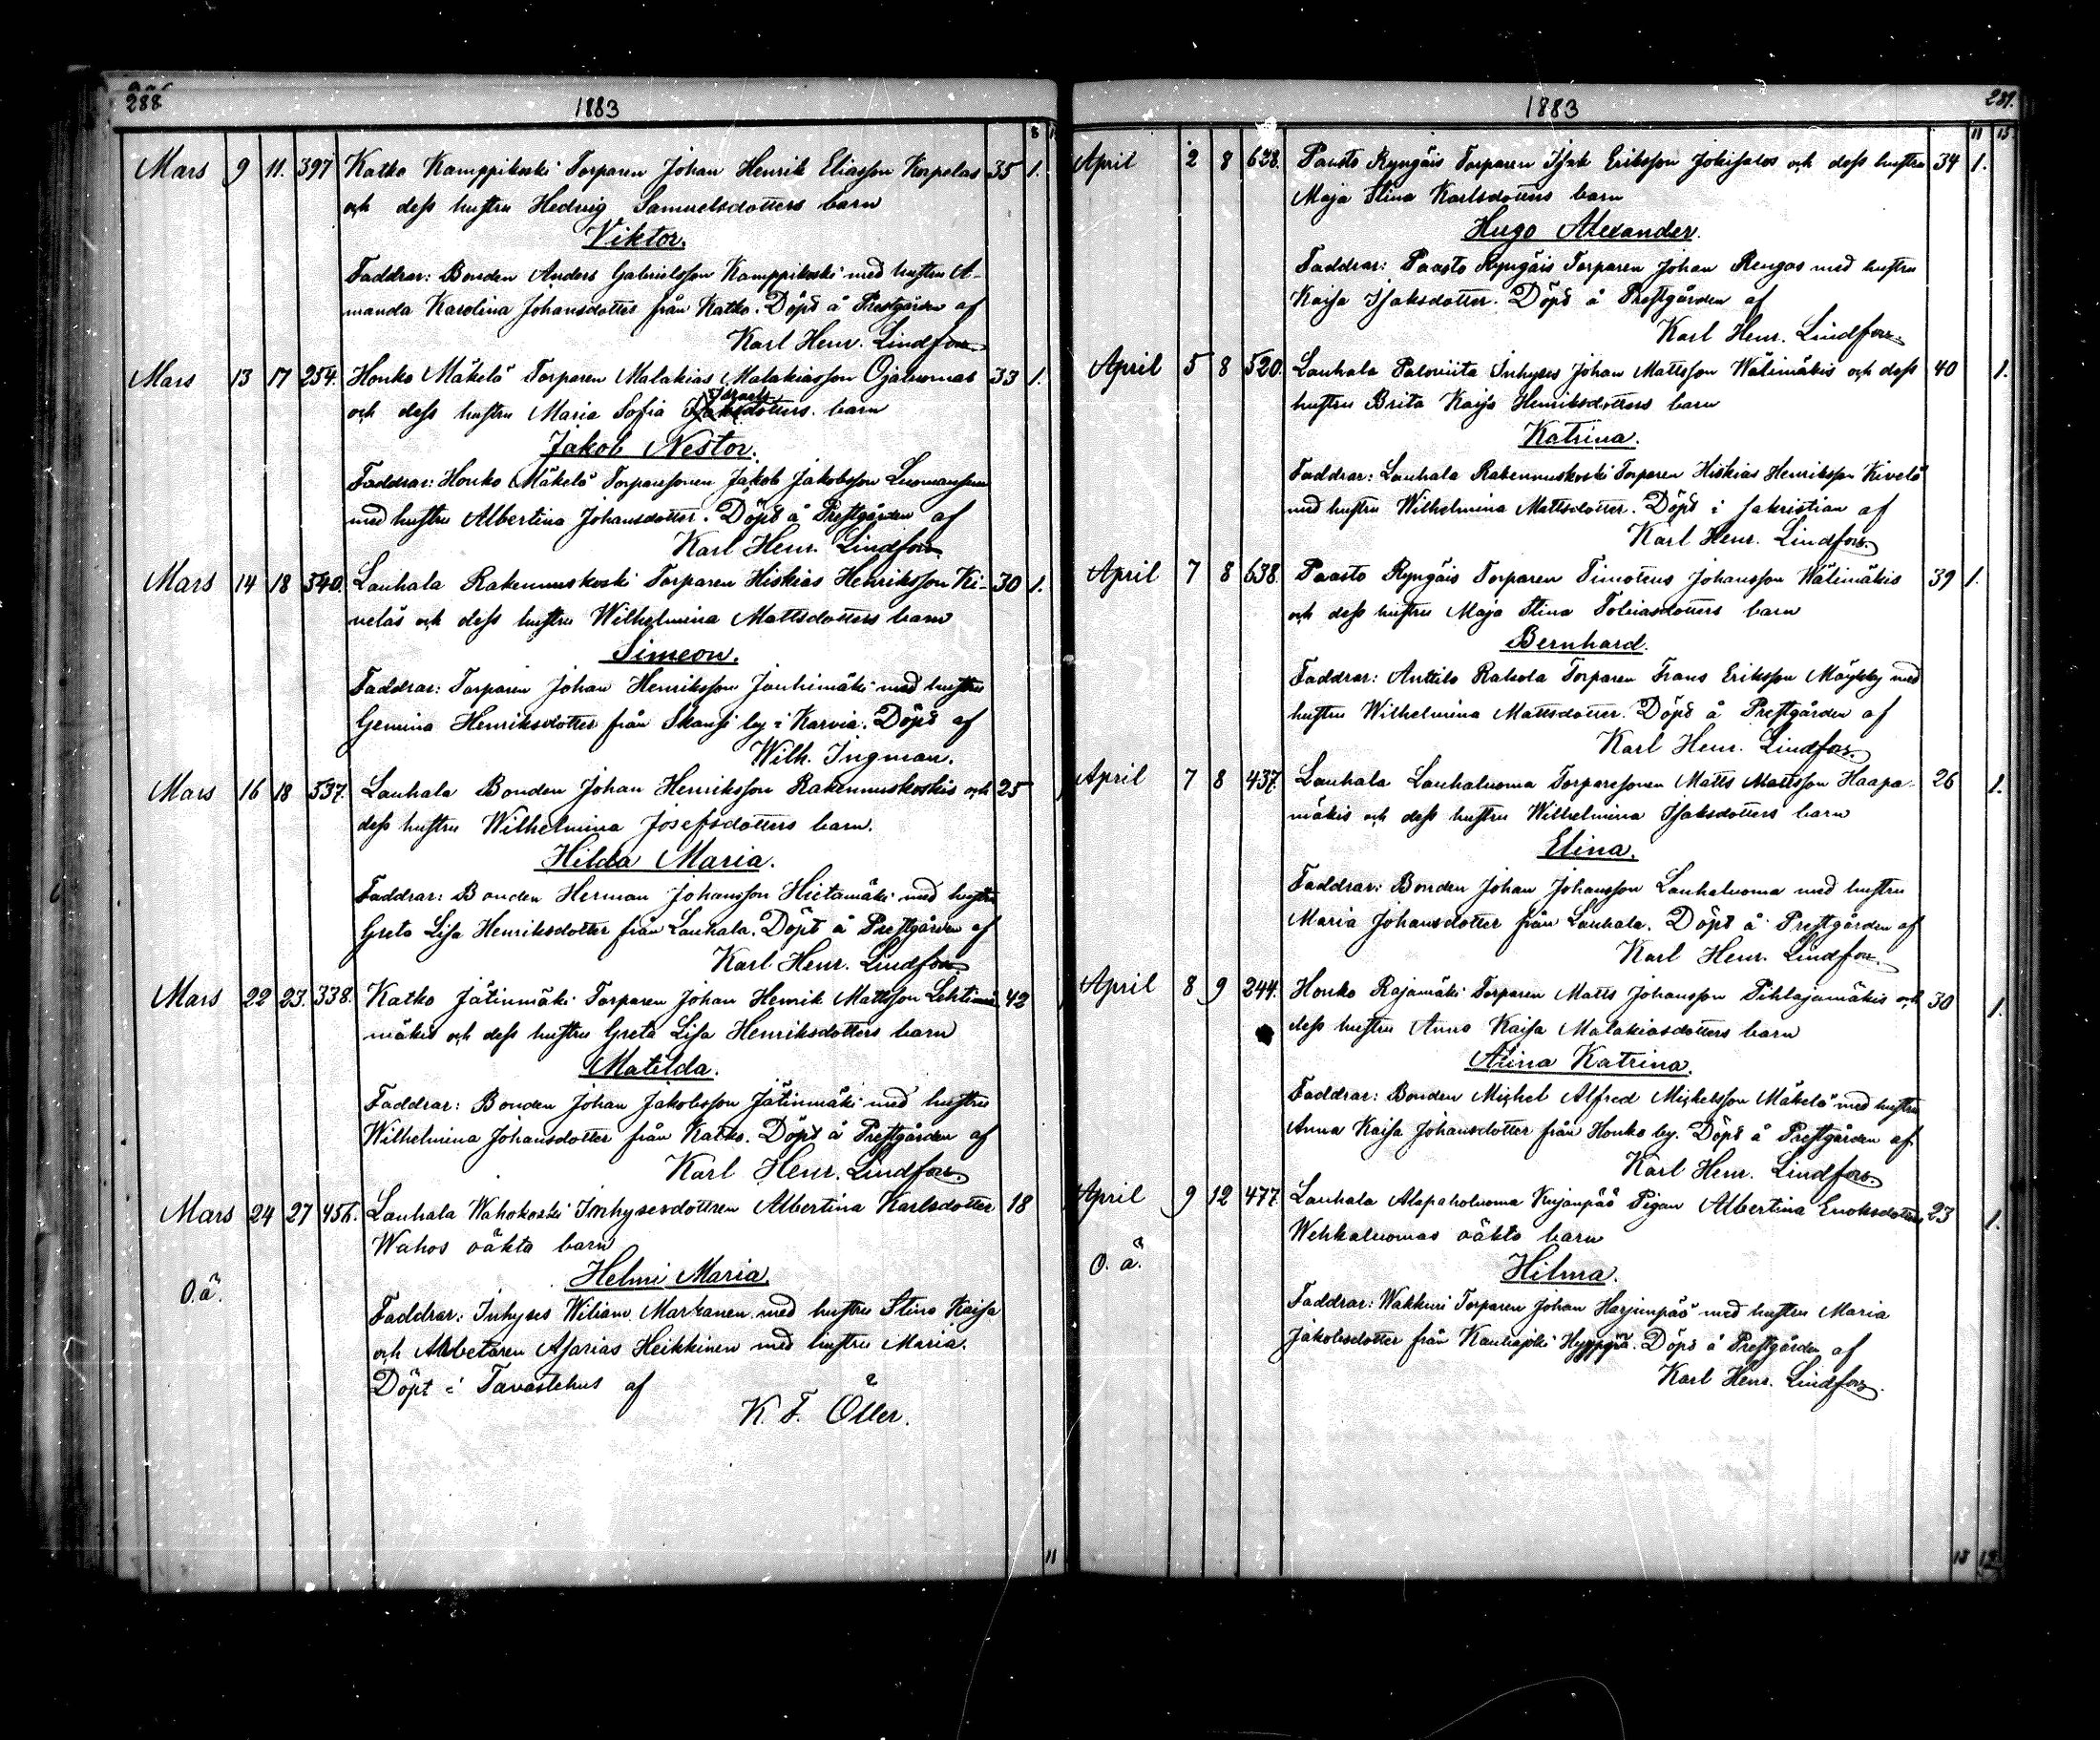 288
1883
8
Mars 9 11. 397 Katko Kamppikoski Torparen Johan Henrik Eliasson Korpelas 35 1.
och dess hustru Hedvig Samuelsdotters barn
Viktor.
Faddrar: Bonden Anders Gabrielsson Kamppikoski med hustru A-
manda Karolina Johansdotter från Katko. Döpt å Prestgården af
Karl Henr. Lindfors.
Mars 13 17 254. Honko Mäkelä Torparen Malakias Malakiasson Ojaluomas 33 1.
Israels
och dess hustru Maria Sofia dotters barn
Jakob Nestor.
Faddrar: Honko Mäkelä Torparesonen Jakob Jakobsson
med hustru Albertina Johansdotter. Döpt å Prestgården af
Karl Henr. Lindfors
Mars 14 18 540. Lauhala Rakennuskoski Torparen Hiskias Henriksson Ki- 30 1.
veläs och dess hustru Wilhelmina Mattsdotters barn
Simeon.
Faddrar: Torparen Johan Henriksson Jouhimäki med hustru
Gemina Henriksdotter från Skantz by i Karvia. Döpt af
Wilh. Ingman.
Mars 16 18 537. Lauhala Bonden Johan Henriksson Rakennuskoskis och 25
dess hustru Wilhelmina Josefsdotters barn.
Hilda Maria.
Faddrar: Bonden Herman Johansson Hietamäki med hustru
Greta Lisa Henriksdotter från Lauhala. Döpt å Prestgården af
Karl Henr. Lindfors
Mars 22 23. 338. Katko Jätinmäki Torparen Johan Henrik Mattsson 42
mäkis och dess hustru Greta Lisa Henriksdotters barn
Matilda.
Faddrar: Bonden Johan Jakobsson Jätinmäki med hustru
Wilhelmina Johansdotter från Katko. Döpt å Prestgården af
Karl Henr. Lindfors.
Mars 24 27 456. Lauhala Wahokoski Inhysesdottren Albertina Karlsdotter 18
Wahos oäkta barn
O.ä. Helmi Maria.
Faddrar: Inhyses Wiliam Markanen med hustru Stina Kaisa
och Arbetaren Asarias Heikkinen med hustru Maria.
Döpt i Tavastehus af
K. F. Öller.
11
1883
289.
11 13
April 2 8 628. Paasto Ryngäis Torparen Isak Eriksson Jokisalos och dess hustru 34 1.
Maja Stina Karlsdotters barn
Hugo Alexander.
Faddrar: Paasto Ryngäis Torparen Johan Rengas med hustru
Kaisa Isaksdotter. Döpt å Prestgården af
Karl Henr. Lindfors.
April 5 8 520. Lauhala Paloviita Inhyses Johan Mattsson Wälimäkis och dess 40 1.
hustru Brita Kaisa Henriksdotters barn
Katrina.
Faddrar: Lauhala Rakennuskoski Torparen Hiskias Henriksson Kivelä
med hustru Wilhelmina Mattsdotter. Döpt i sakristian af
Karl Henr. Lindfors.
April 7 8 638. Paasto Ryngäis Torparen Timoteus Johansson Wälimäkis 39 1.
och dess hustru Maja Stina Tobiasdotters barn
Bernhard.
Faddrar: Anttila Rahola Torparen Frans Eriksson med
hustru Wilhelmina Mattsdotter. Döpt å Prestgården af
Karl Henr. Lindfors
April 7 8 437. Lauhala Lauhaluoma Torparesonen Matts Mattsson Haapa- 26 1.
mäkis och dess hustru Wilhelmina Isaksdotters barn
Elina.
Faddrar: Bonden Johan Johansson Lauhaluoma med hustru
Maria Johansdotter från Lauhala. Döpt å Prestgården af
Karl Henr. Lindfors.
April 8 9 244. Honko Rajamäki Torparen Matts Johansson Pihlajamäkis och 30 1.
dess hustru Anna Kaisa Malakiasdotters barn
Alina Katrina.
Faddrar: Bonden Michel Alfred Michelsson Mäkelä med hustru
Anna Kaisa Johansdotter från Honko by. Döpt å Prestgården af
Karl Henr. Lindfors.
April 9 12 477. Lauhala Alapaholuoma Kujanpää Pigan Albertina Enoksdotters 23 1.
Wehkaluomas oäkta barn
O. ä. Hilma.
Faddrar: Wakkuri Torparen Johan Harjunpää med hustru Maria
Jakobsdotter från Kauhajoki Hyyppä. Döpt å Prestgården af
Karl Henr. Lindfors.
13